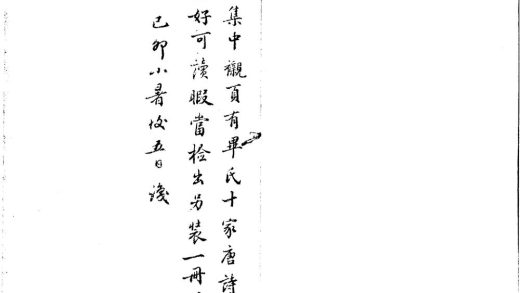 集中襯頁有畢氏十家唐詩
好可讀暇當檢出另裝一冊
己卯小暑後五日